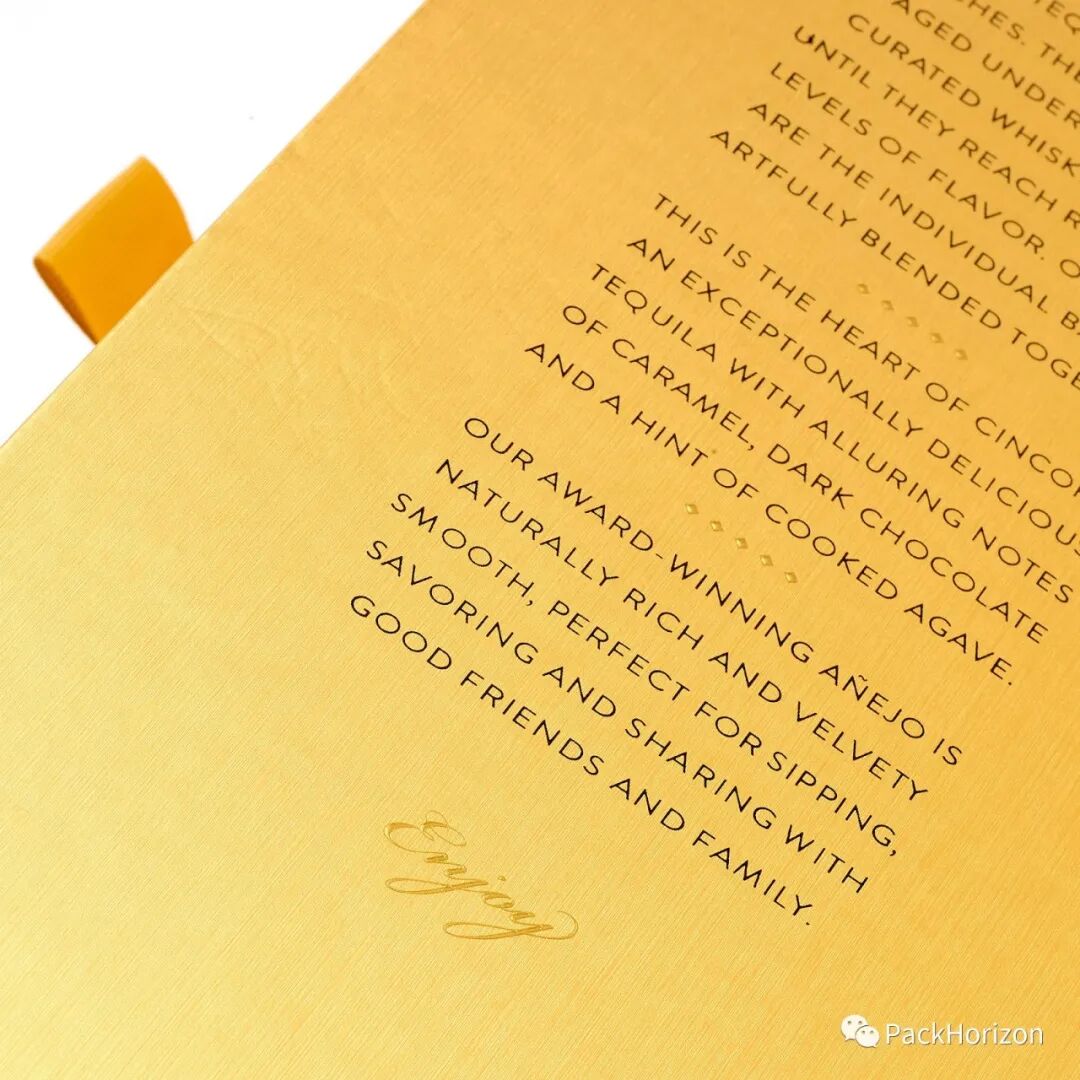 AGED UNDER
CURATED WHISK
UNTIL THEY REACH
LEVELS OF FLAVOR.
ARE THE INDIVIDUAL
ARTFULLY BLENDED TOGE
THIS IS THE HEART OF CINCO
AN EXCEPTIONALLY DELICIOUS
TEQUILA WITH ALLURING NOTES
OF CARAMEL, DARK CHOCOLATE
AND A HINT OF COOKED AGAVE.
OUR AWARD-WINNING AÑEJO IS
NATURALLY RICH AND VELVETY
SMOOTH, PERFECT FOR SIPPING,
SAVORING AND SHARING WITH
GOOD FRIENDS AND FAMILY.
Enjoy
PackHorizon